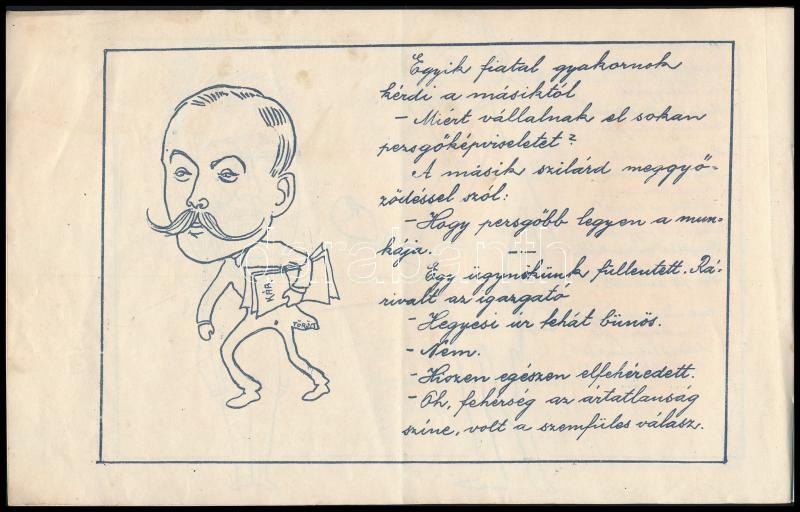 Egyik fiatal gyakornok
kérdi a másiktól
- Miért vállalnak el sokan
pezsgőképviseletet?
A másik szilárd meggyő-
ződéssel szól:
- Hogy pezsgőbb legyen a mun-
kája.
Egy ügynökünk füllentett. Rá-
rivalt az igazgató
- Hegyesi úr tehát bűnös.
- Nem.
- Hiszen egészen elfehéredett.
- Oh, fehérség az ártatlanság
színe, volt a szemfüles válasz.
KÁR.
TÖRÖT
darabanth